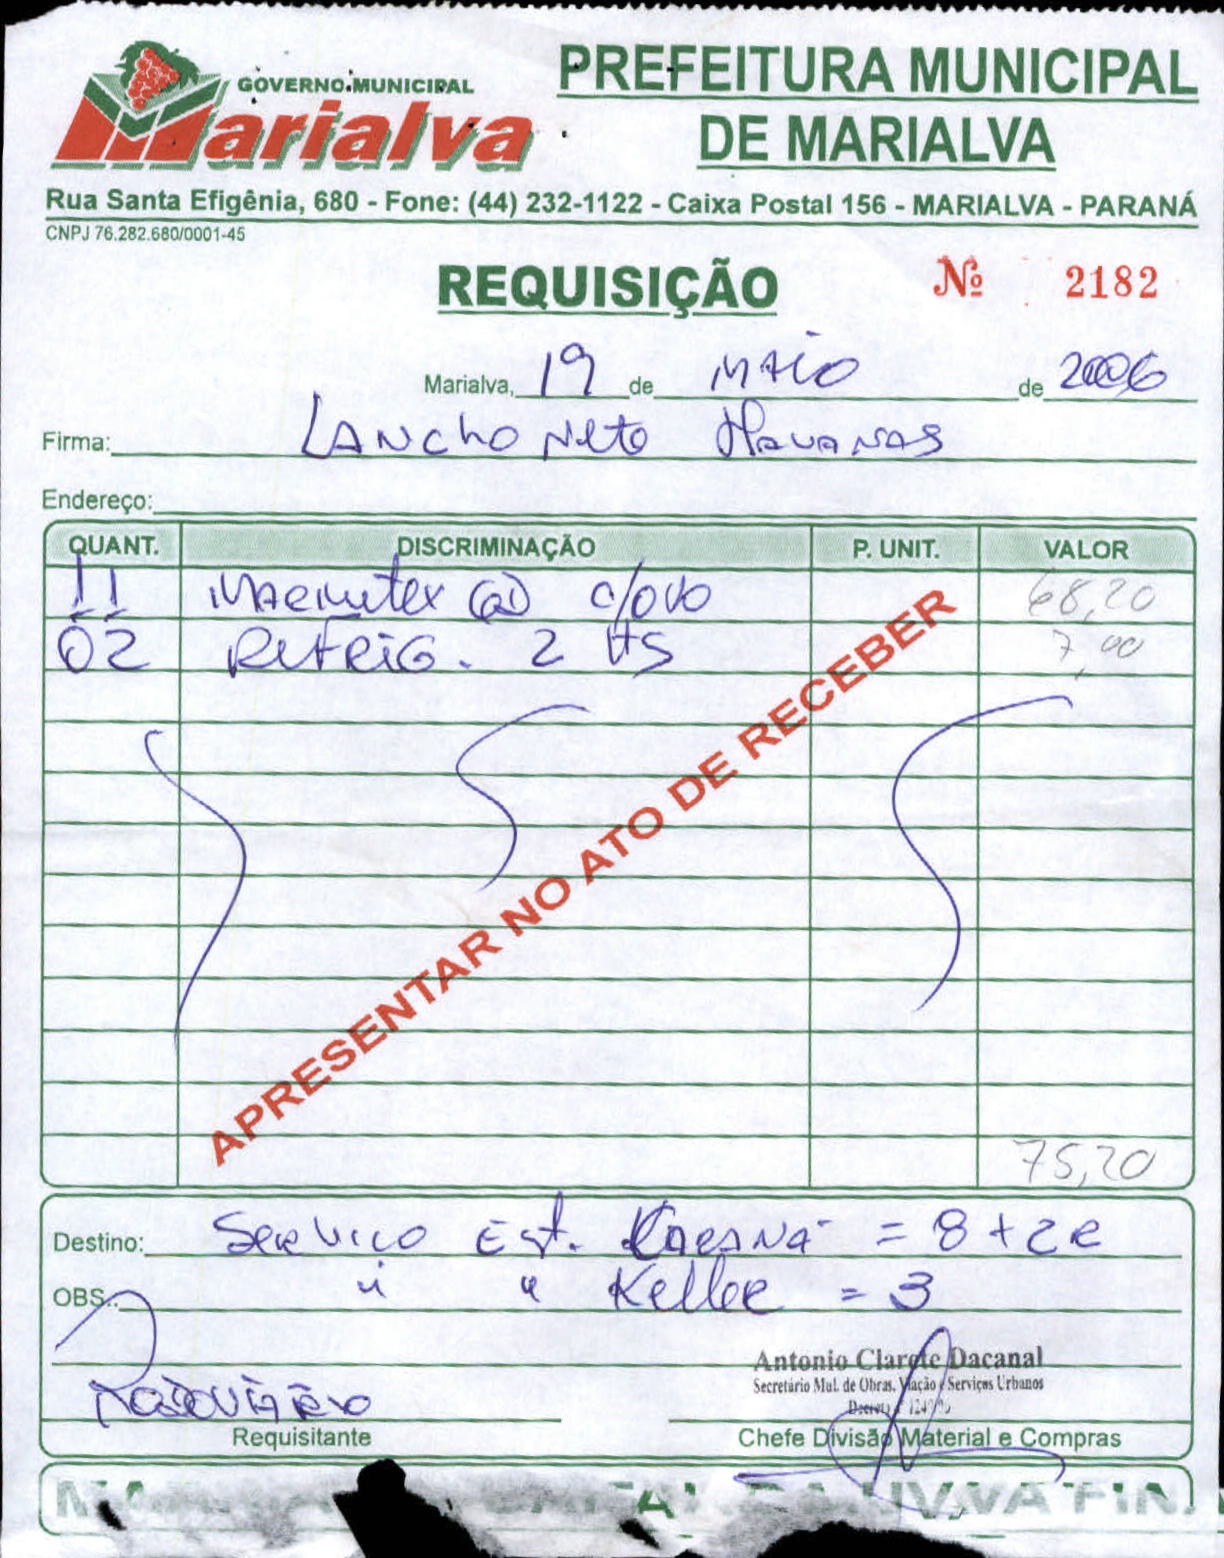 GOVERNO MUNICIPAL
Marialva
PREFEITURA MUNICIPAL
DE MARIALVA
Rua Santa Efigênia, 680 - Fone: (44) 232-1122 - Caixa Postal 156 - MARIALVA - PARANÁ
CNPJ 76.282.680/0001-45
REQUISIÇÃO Nº 2182
Marialva, 19 de MAIO de 2006
Firma: LANCHONETE HAVANAS
Endereço:
QUANT. DISCRIMINAÇÃO P. UNIT. VALOR
11 c/ovo 68,20
02 REFRIG. 2 LTS 7,00
APRESENTAR NO ATO DE RECEBER
75,20
Destino: SERVIÇO Est. = 8 + 2 R
OBS.: " " Keller = 3
Antonio Clarete Dacanal
Secretário Mul. de Obras, Viação e Serviços Urbanos
Requisitante Chefe Divisão Material e Compras
UVA FINA